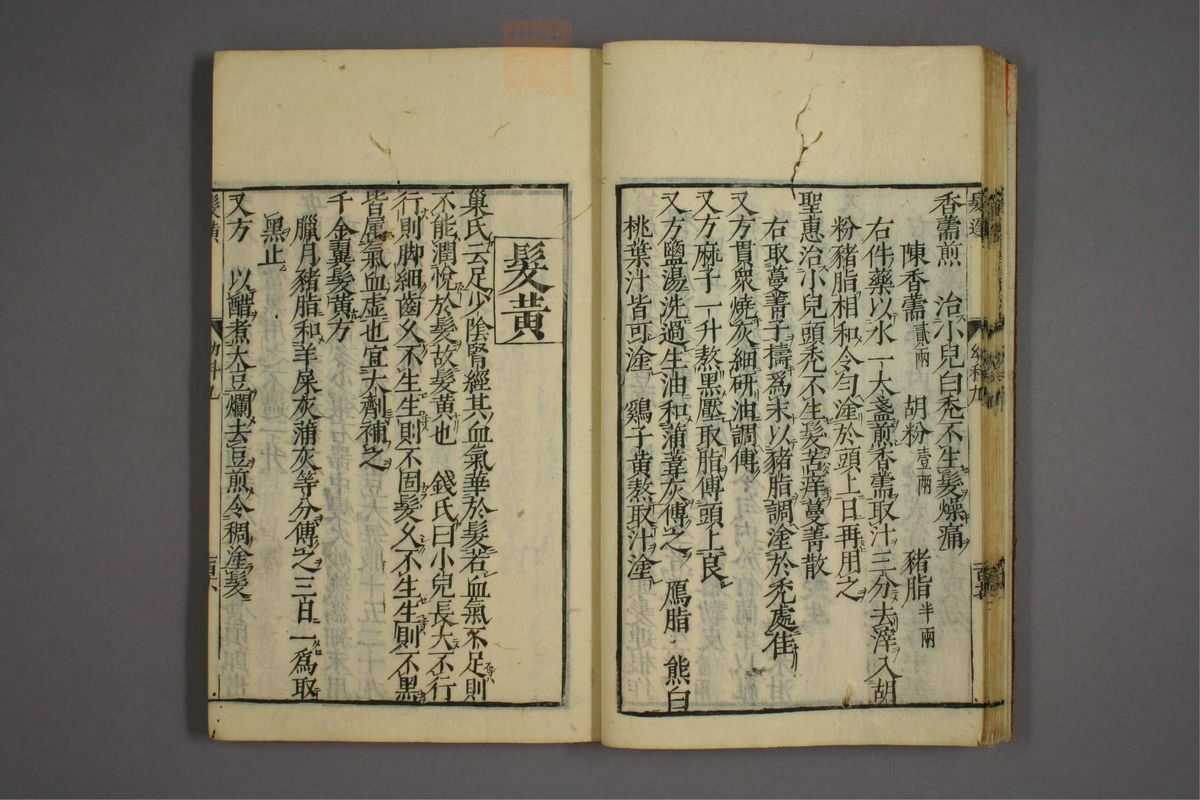 香薷煎　治小兒白禿不生髮燥痛
陳香薷貳兩　胡粉壹兩　豬脂半兩
右件藥以水一大盞煎香薷取汁三分去滓入胡
粉豬脂相和令勻塗於頭上日再用之
聖惠治小兒頭禿不生髮苦痒蔓菁散
右取蔓菁子擣為末以豬脂調塗於禿處佳
又方貫衆燒灰細研油調傅
又方麻子一升熬黑壓取脂傅頭上良
又方鹽湯洗過生油和蒲葦灰傅之　鴈脂　熊白
桃葉汁皆可塗　鷄子黃熬取汁塗
髮黃
巢氏云足少陰腎經其血氣華於髮若血氣不足則
不能潤悅於髮故髮黃也　錢氏曰小兒長大不行
行則脚細齒久不生生則不固髮久不生生則不黑
皆屬氣血虛也宜大劑補之
千金翼髮黃方
臘月豬脂和羊屎灰蒲灰等分傅之三日一為取
黑止
又方　以醋煮大豆爛去豆煎令稠塗髮